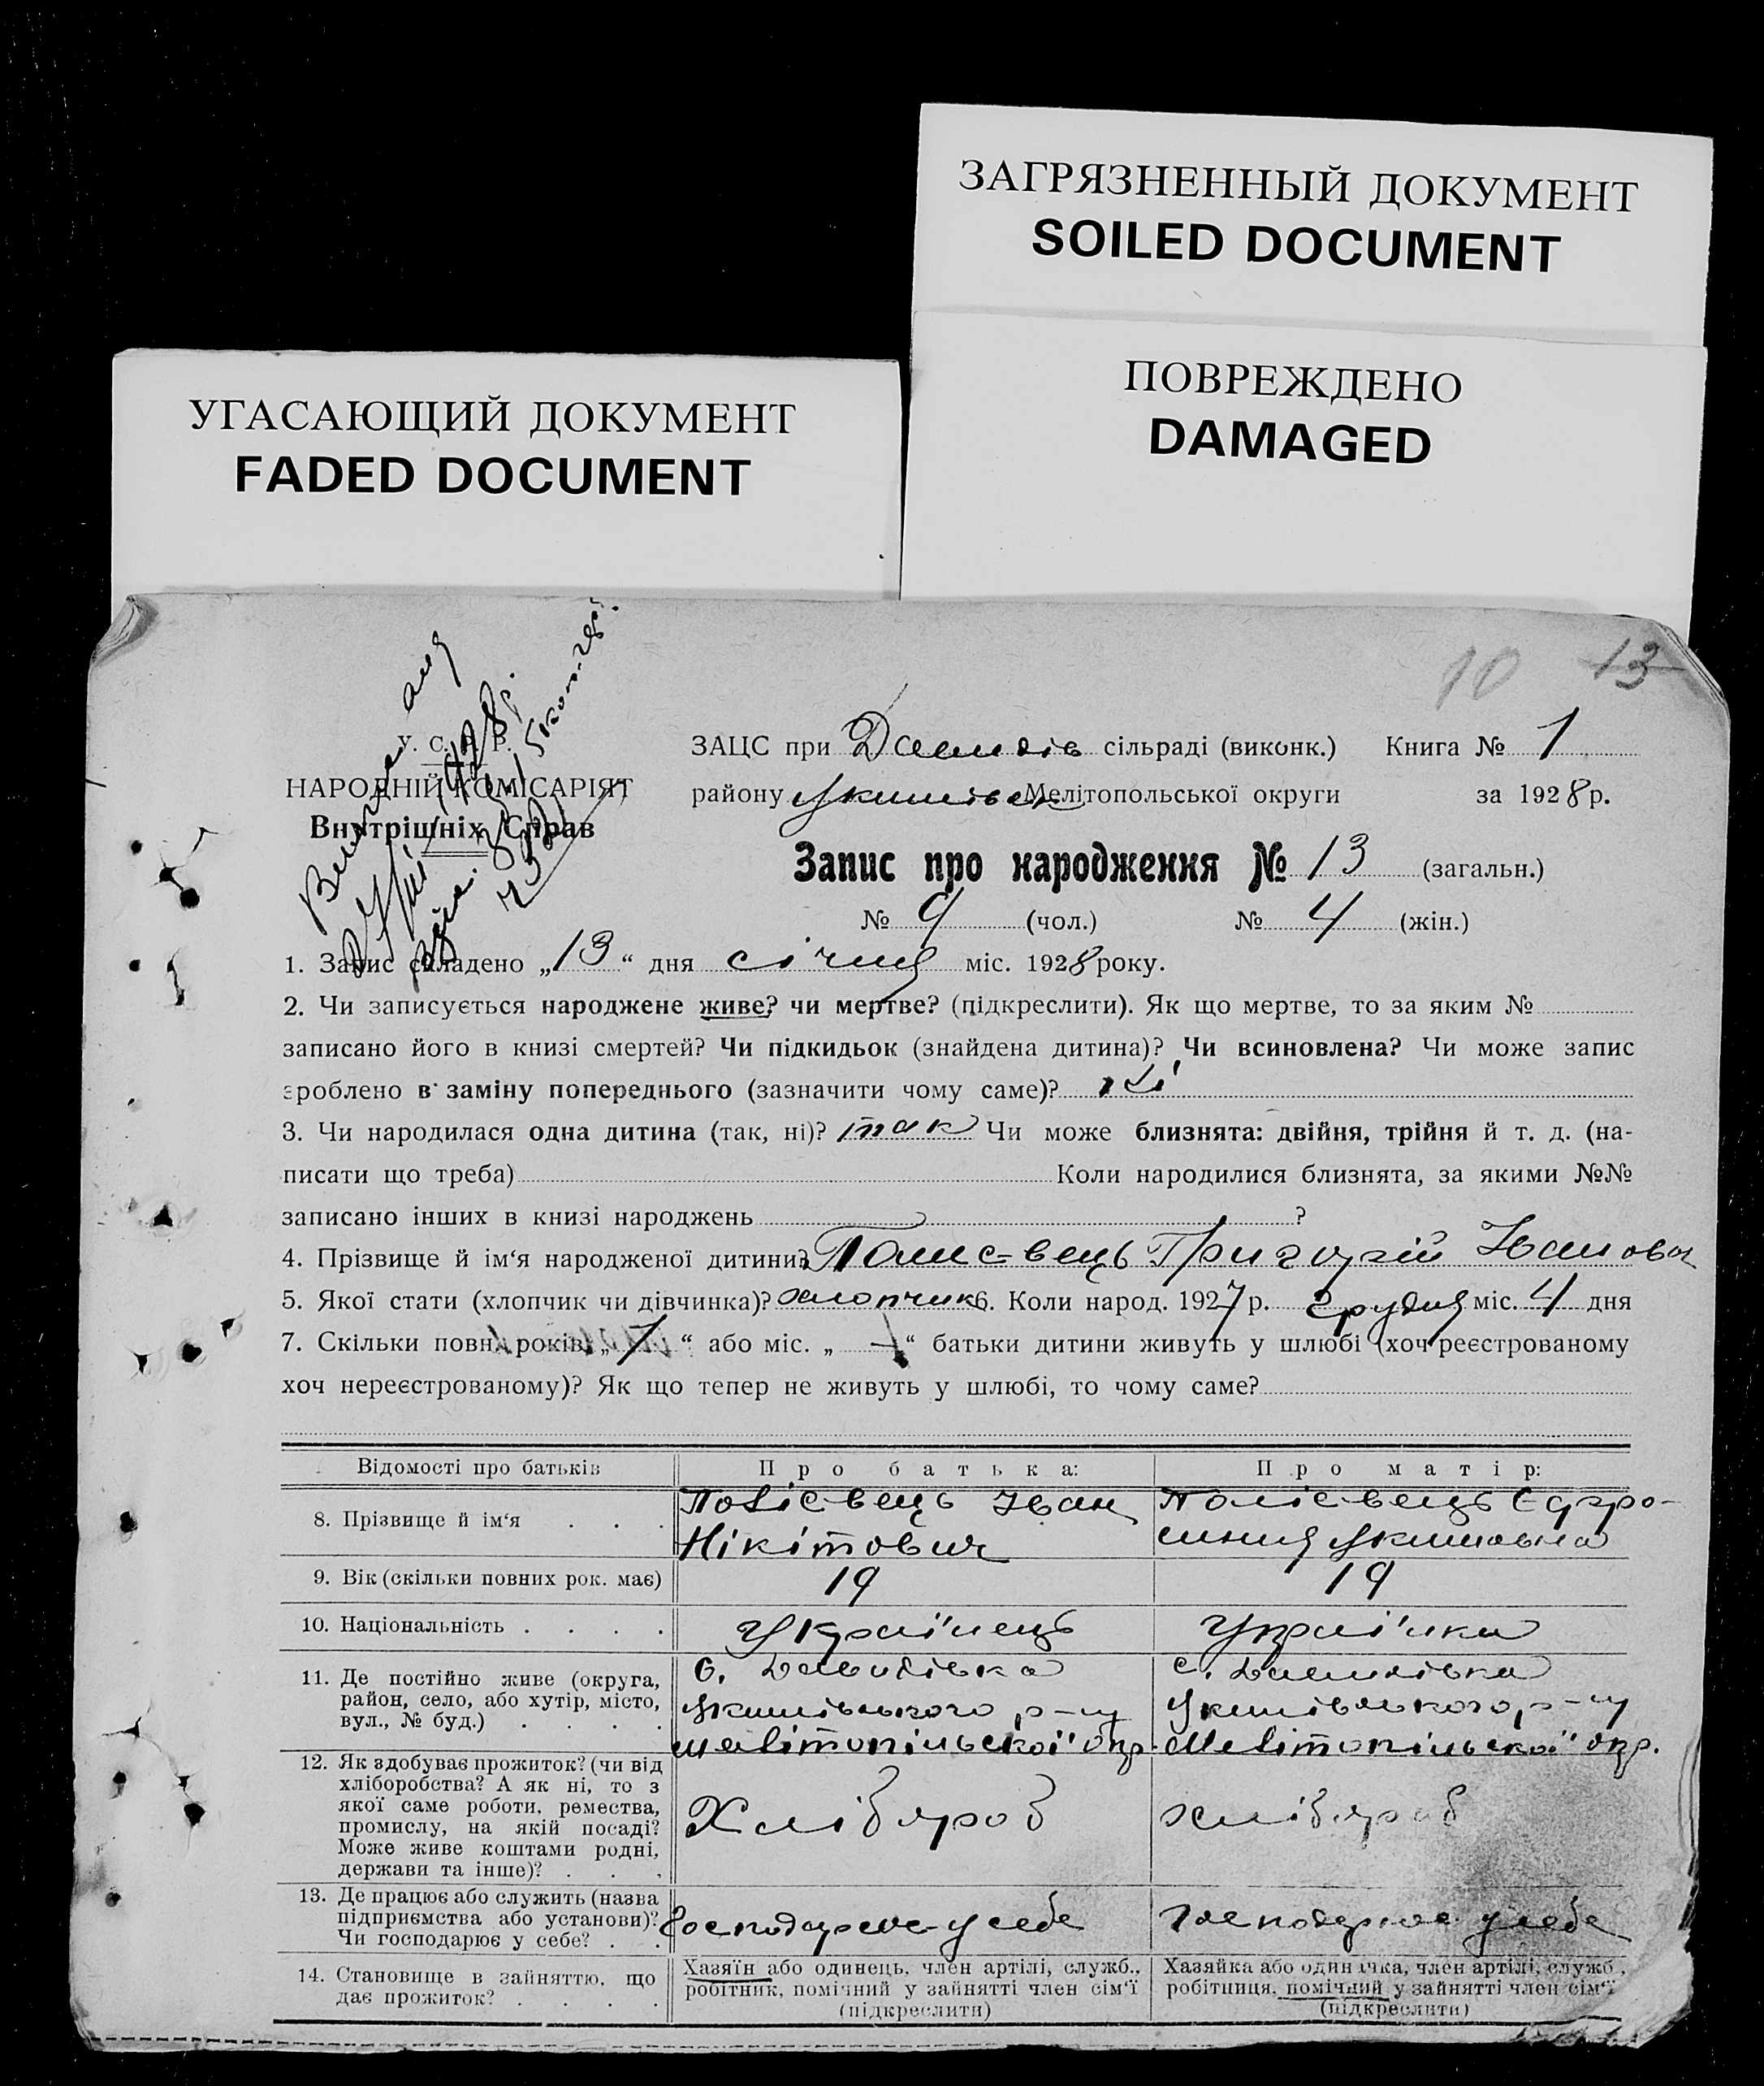 ЗАГРЯЗНЕННЫЙ ДОКУМЕНТ
SOILED DOCUMENT
ПОВРЕЖДЕНО
DAMAGED
УГАСАЮЩИЙ ДОКУМЕНТ
FADED DOCUMENT
10 13
У. С. Р. Р.
НАРОДНІЙ КОМІСАРІЯТ
Внутрішніх Справ
ЗАЦС при Давидів сільраді (виконк.) Книга № 1
району Якимівськ Мелітопольської округи за 1928 р.
Запис про народження № 13 (загальн.)
№ 9 (чол.) № 4 (жін.)
1. Запис складено „13“ дня січня міс. 1928 року.
2. Чи записується народжене живе? чи мертве? (підкреслити). Як що мертве, то за яким №
записано його в книзі смертей? Чи підкидьок (знайдена дитина)? Чи всиновлена? Чи може запис
зроблено в заміну попереднього (зазначити чому саме)? ні
3. Чи народилася одна дитина (так, ні)? так Чи може близнята: двійня, трійня й т. д. (на-
писати що треба) Коли народилися близнята, за якими №№
записано інших в книзі народжень ?
4. Прізвище й ім‘я народженої дитини? Полієвець Григорій Іванович
5. Якої стати (хлопчик чи дівчинка)? хлопчик 6. Коли народ. 1927 р. грудня міс. 4 дня
7. Скільки повних років „1“ або міс. „ “ батьки дитини живуть у шлюбі (хоч реєстрованому
хоч нереєстрованому)? Як що тепер не живуть у шлюбі, то чому саме?
Відомості про батьків Про батька: Про матір:
8. Прізвище й ім‘я . . . Полієвець Іван Нікітович Полієвець Єфро-синия Якимовна
9. Вік (скільки повних рок. має) 19 19
10. Національність . . . . Українець Українка
11. Де постійно живе (округа, район, село, або хутір, місто, вул., № буд.) . . . . с. Давидівка Якимівського р-ну Мелітопільської окр. с. Давидівка Якимівського р-ну Мелітопільської окр.
12. Як здобуває прожиток? (чи від хліборобства? А як ні, то з якої саме роботи, ремества, промислу, на якій посаді? Може живе коштами родні, держави та інше)? . . . Хлібороб хлібороб
13. Де працює або служить (назва підприємства або установи)? Чи господарює у себе? . . Господарює у себе Господарює у себе
14. Становище в зайняттю, що дає прожиток? . . . . Хазяїн або одинець, член артілі, служб., робітник, помічний у зайнятті член сім‘ї (підкреслити) Хазяйка або одиначка, член артілі, служб., робітниця, помічний у зайнятті член сім‘ї (підкреслити)